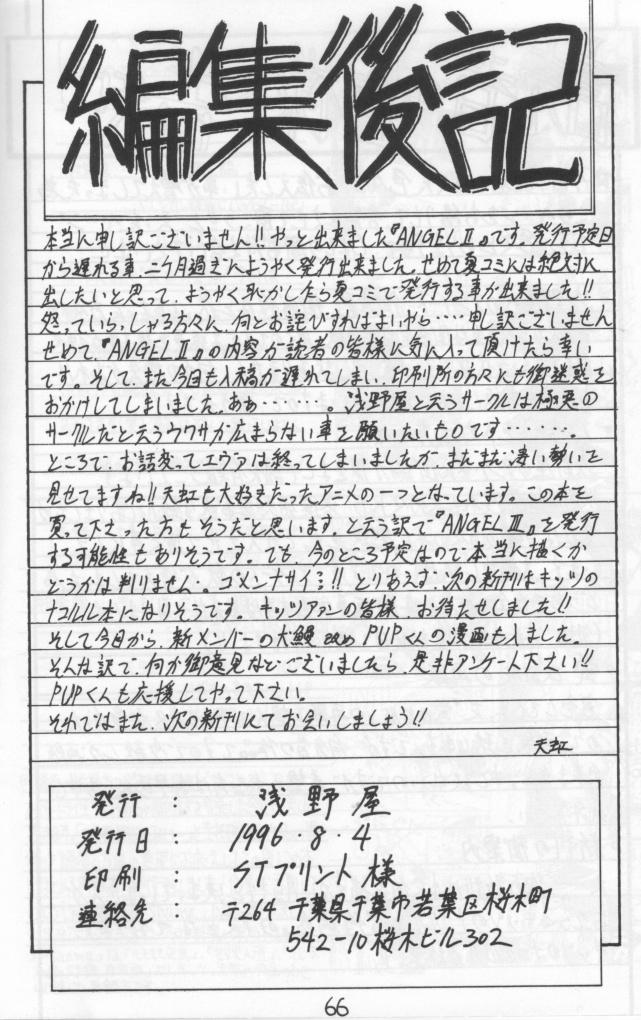 編集後記
本当に申し訳ございません!!やっと出来ました『ANGELⅡ』です。発行予定日
から遅れる事、二ケ月過ぎにようやく発行出来ました。せめて夏コミには絶対に
出したいと思って、ようやく恥かしながら夏コミで発行する事が出来ました!!
怒っていらっしゃる方々に、何とお詫びすればよいやら‥‥申し訳ございません
せめて、『ANGELⅡ』の内容が読者の皆様に気に入って頂けたら幸い
です。そして、また今回も入稿が遅れてしまい、印刷所の方々にも御迷惑を
おかけしてしまいました。ああ‥‥‥‥。浅野屋と云うサークルは極悪の
サークルだと云うウワサが広まらない事を願いたいものです‥‥‥。
ところで、お話変ってエヴァは終ってしまいましたが、まだまだ凄い勢いを
見せてますね!!天虹も大好きだったアニメの一つとなっています。この本を
買って下さった方もそうだと思います。と云う訳で『ANGELⅢ』を発行
する可能性もありそうです。でも、今のところ予定なので本当に描くか
どうかは判りません。ゴメンナサイ!!とりあえず、次の新刊はキッツの
ナコルル本になりそうです。キッツファンの皆様、お待たせしました!!
そして今回から、新メンバーの犬鰻改めPUPくんの漫画も入ました。
そんな訳で、何か御意見などございましたら、是非アンケート下さい!!
PUPくんも応援してやって下さい。
それではまた、次の新刊にてお会いしましょう!!
天虹
発行 : 浅野屋
発行日 : 1996.8.4
印刷 : STプリント様
連絡先 : 〒264 千葉県千葉市若葉区桜木町
542-10桜木ビル302
66